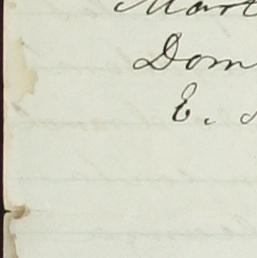 Mart
Dom
E.